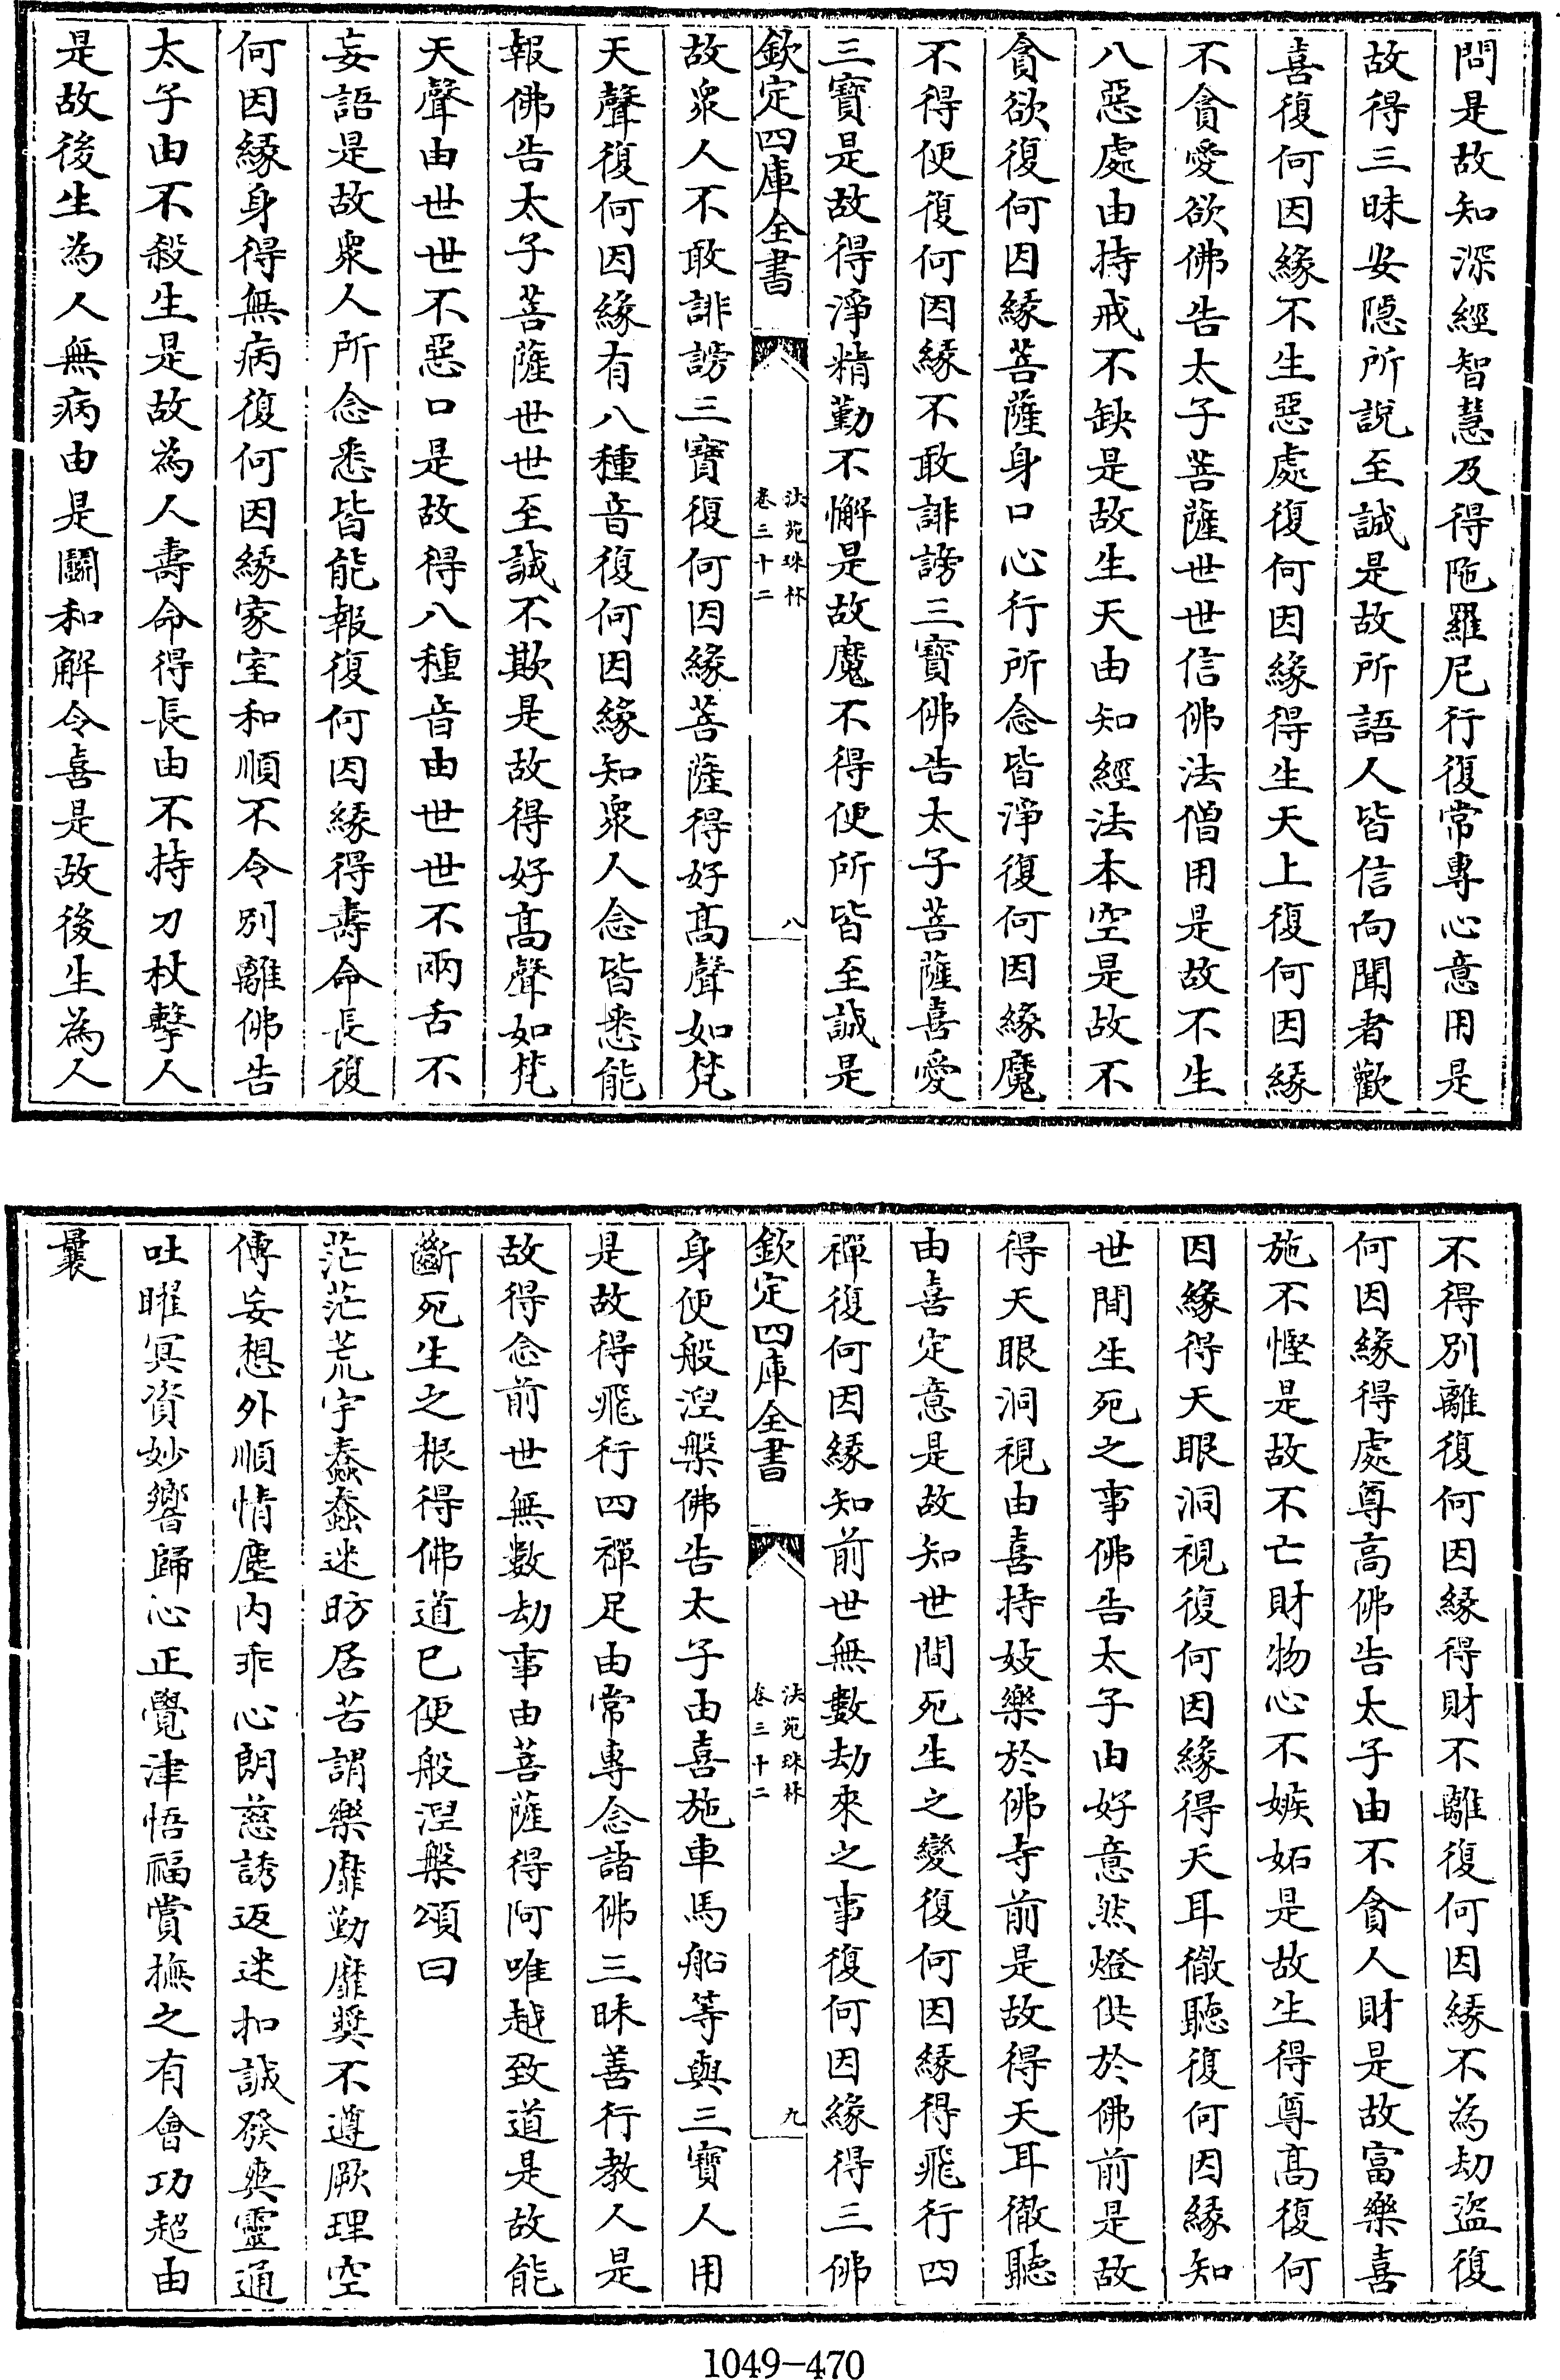 問是故知深經智慧及得陁羅尼行復常專心意用是
故得三昧安隠所說至誠是故所語人皆信向聞者歡
喜復何因緣不生惡處復何因緣得生天上復何因緣
不貪愛欲佛告太子菩薩世世信佛法僧用是故不生
八惡處由持戒不缺是故生天由知經法本空是故不
貪欲復何因緣菩薩身口心行所念皆淨復何因緣魔
不得便復何因緣不敢誹謗三寶佛告太子菩薩喜愛
三寶是故得淨精勤不懈是故魔不得便所皆至誠是
欽定四庫全書
法苑珠林
卷三十二
八
故衆人不敢誹謗三寶復何因緣菩薩得好髙聲如梵
天聲復何因緣有八種音復何因緣知衆人念皆悉能
報佛告太子菩薩世世至誠不欺是故得好髙聲如梵
天聲由世世不惡口是故得八種音由世世不兩舌不
妄語是故衆人所念悉皆能報復何因緣得壽命長復
何因緣身得無病復何因緣家室和順不令別離佛告
太子由不殺生是故為人壽命得長由不持刀杖擊人
是故後生為人無病由是鬬和解令喜是故後生為人
不得別離復何因緣得財不離復何因緣不為劫盜復
何因緣得處尊高佛告太子由不貪人財是故富樂喜
施不慳是故不亡財物心不嫉妬是故生得尊髙復何
因緣得天眼洞視復何因緣得天耳徹聽復何因緣知
世間生死之事佛告太子由好意然燈供於佛前是故
得天眼洞視由喜持妓樂於佛寺前是故得天耳徹聽
由喜定意是故知世間死生之變復何因緣得飛行四
禪復何因緣知前世無數劫來之事復何因緣得三佛
欽定四庫全書
法苑珠林
卷三十二
九
身便般涅槃佛告太子由喜施車馬船等與三寶人用
是故得飛行四禪足由常專念諸佛三昧善行教人是
故得念前世無數劫事由菩薩得阿唯越致道是故能
斷死生之根得佛道已便般涅槃頌曰
茫茫荒宇蠢蠢迷昉居苦謂樂靡勤靡奬不遵厥理空
傳妄想外順情塵內乖心朗慈誘返迷扣誠發爽靈通
吐曜冥資妙響歸心正覺津悟福賞撫之有會功超由
曩
1049-470